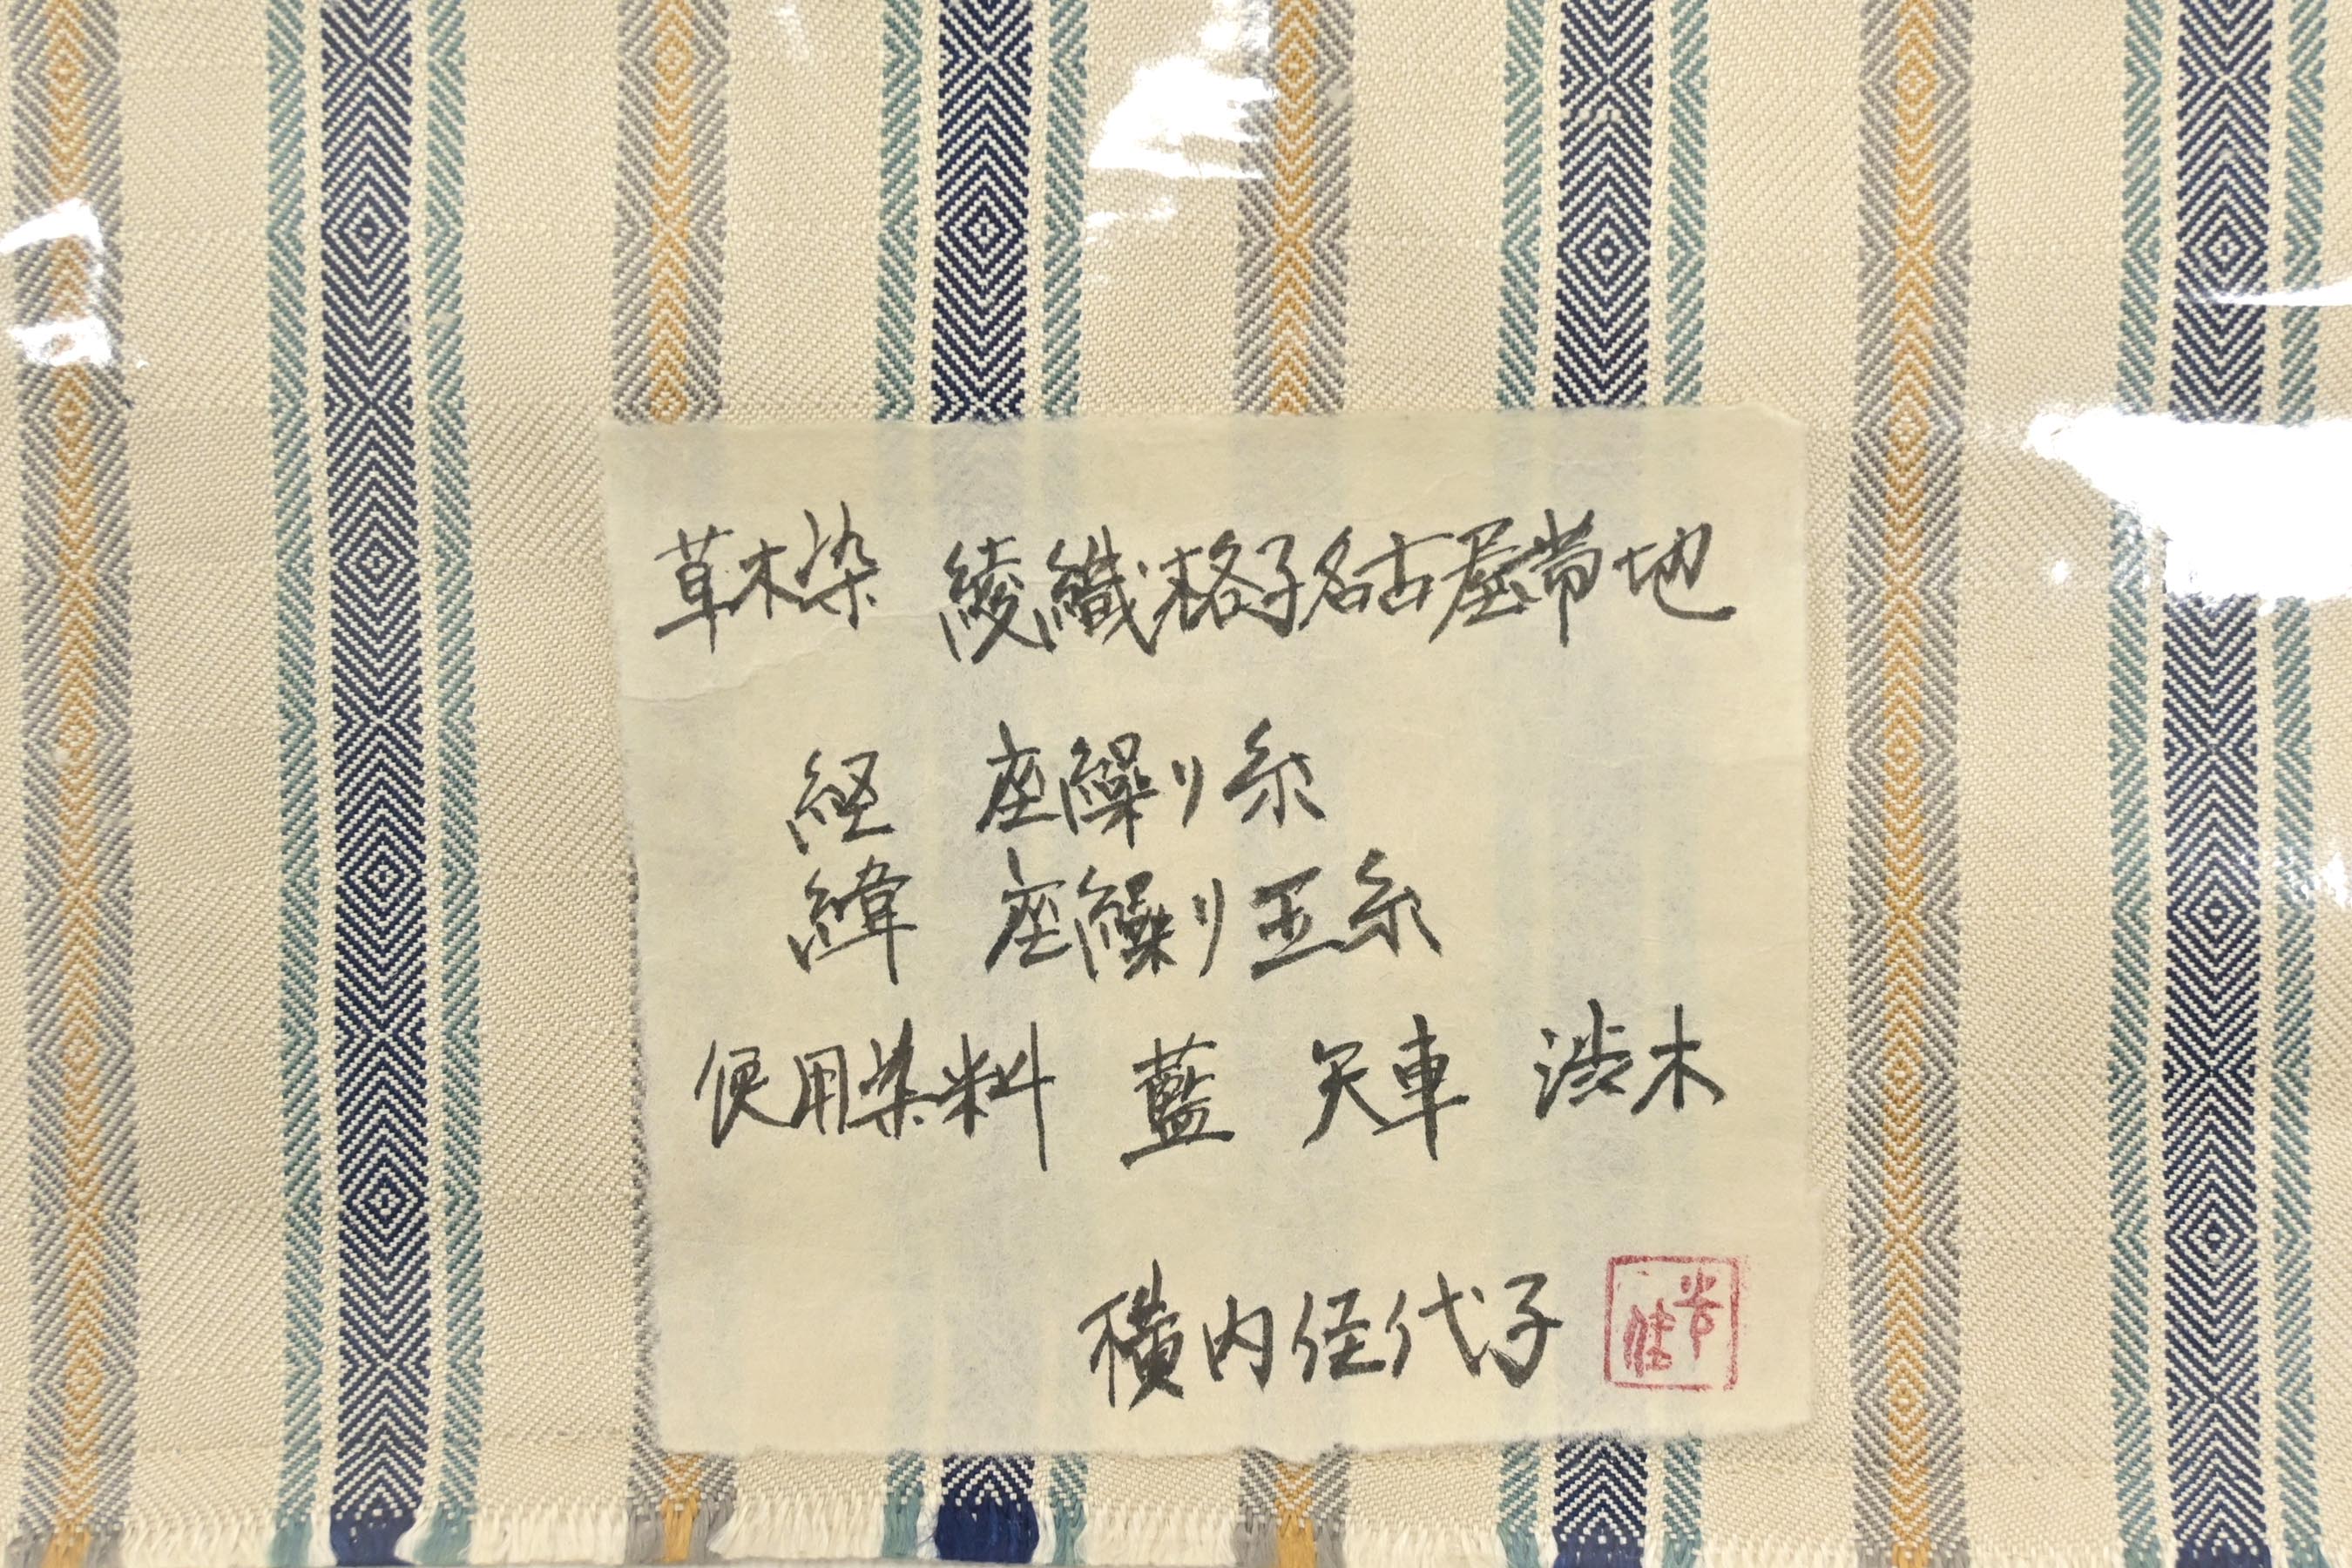 草木染 綾織格子名古屋帯地
経 座繰り糸
緯 座繰り玉糸
使用染料 藍 矢車 渋木
横内佳代子